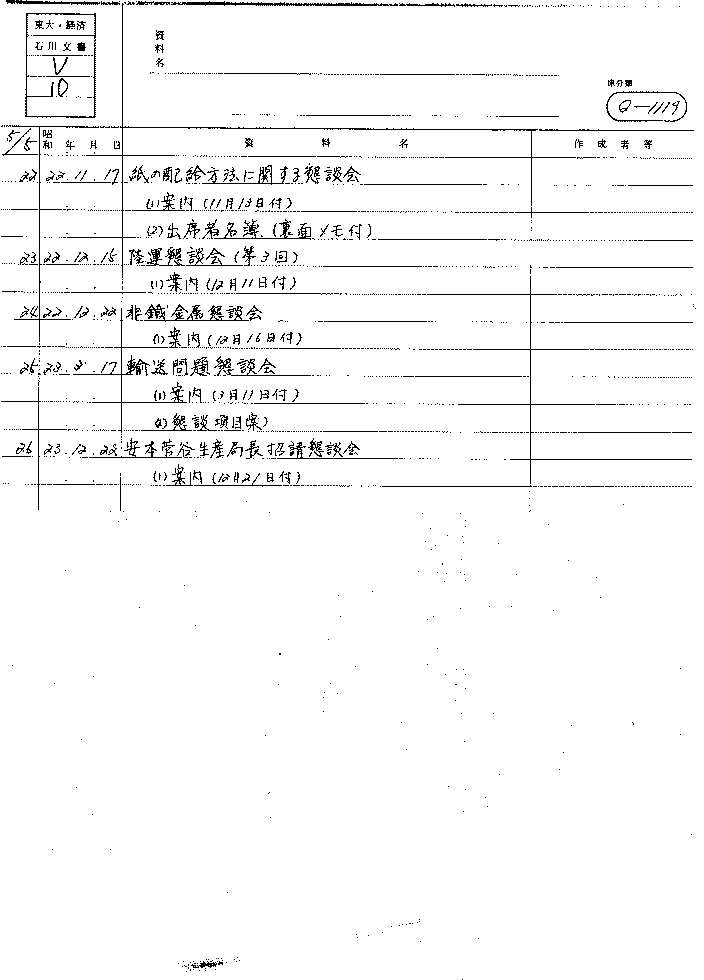 東大・経済
石川文書
V
10
資料名
原分類
Q-1119
5/5 昭和 年 月 日 資料名 作成者等
22 22.11.17 紙の配給方法に関する懇談会
(1)案内(11月13日付)
(2)出席者名簿(裏面メモ付)
23 22.12.15 陸運懇談会(第3回)
(1)案内(12月11日付)
24 22.12.22 非鐵金属懇談会
(1)案内(12月16日付)
25 23.3.17 輸送問題懇談会
(1)案内(3月11日付)
(2)懇談項目案)
26 23.12.22 安本菅谷生産局長招請懇談会
(1)案内(12月21日付)